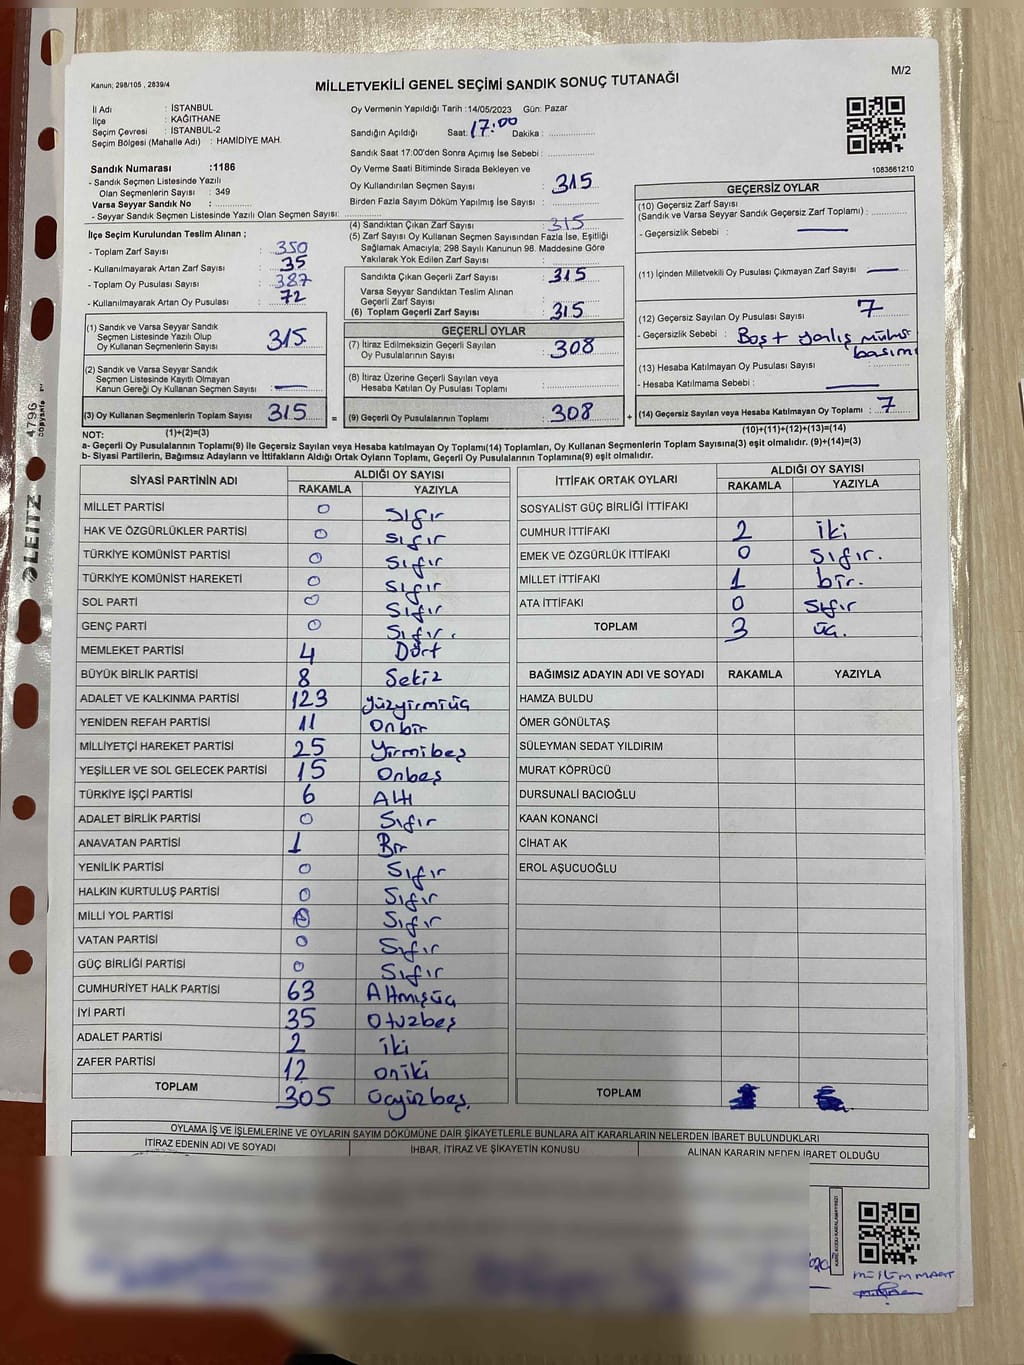 M/2
Kanun; 298/105 , 2839/4
MİLLETVEKİLİ GENEL SEÇİMİ SANDIK SONUÇ TUTANAĞI
İl Adı : İSTANBUL
İlçe : KAĞITHANE
Seçim Çevresi : İSTANBUL-2
Seçim Bölgesi (Mahalle Adı) : HAMİDİYE MAH.
Sandık Numarası :1186
- Sandık Seçmen Listesinde Yazılı
Olan Seçmenlerin Sayısı : 349
Varsa Seyyar Sandık No :
- Seyyar Sandık Seçmen Listesinde Yazılı Olan Seçmen Sayısı:
İlçe Seçim Kurulundan Teslim Alınan ;
- Toplam Zarf Sayısı : 350
- Kullanılmayarak Artan Zarf Sayısı : 35
- Toplam Oy Pusulası Sayısı : 387
- Kullanılmayarak Artan Oy Pusulası : 72
(1) Sandık ve Varsa Seyyar Sandık
Seçmen Listesinde Yazılı Olup
Oy Kullanan Seçmenlerin Sayısı : 315
(2) Sandık ve Varsa Seyyar Sandık
Seçmen Listesinde Kayıtlı Olmayan
Kanun Gereği Oy Kullanan Seçmen Sayısı : —
(3) Oy Kullanan Seçmenlerin Toplam Sayısı : 315 =
Oy Vermenin Yapıldığı Tarih :14/05/2023 Gün: Pazar
Sandığın Açıldığı Saat: 17:00 Dakika :
Sandık Saat 17:00'den Sonra Açımış İse Sebebi :
Oy Verme Saati Bitiminde Sırada Bekleyen ve
Oy Kullandırılan Seçmen Sayısı : 315
Birden Fazla Sayım Döküm Yapılmış İse Sayısı :
(4) Sandıktan Çıkan Zarf Sayısı : 315
(5) Zarf Sayısı Oy Kullanan Seçmen Sayısından Fazla İse, Eşitliği
Sağlamak Amacıyla; 298 Sayılı Kanunun 98. Maddesine Göre
Yakılarak Yok Edilen Zarf Sayısı :
Sandıkta Çıkan Geçerli Zarf Sayısı : 315
Varsa Seyyar Sandıktan Teslim Alınan
Geçerli Zarf Sayısı :
(6) Toplam Geçerli Zarf Sayısı : 315
GEÇERLİ OYLAR
(7) İtiraz Edilmeksizin Geçerli Sayılan
Oy Pusulalarının Sayısı : 308
(8) İtiraz Üzerine Geçerli Sayılan veya
Hesaba Katılan Oy Pusulası Toplamı :
(9) Geçerli Oy Pusulalarının Toplamı : 308 +
1083661210
GEÇERSİZ OYLAR
(10) Geçersiz Zarf Sayısı
(Sandık ve Varsa Seyyar Sandık Geçersiz Zarf Toplamı) :
- Geçersizlik Sebebi : —
(11) İçinden Milletvekili Oy Pusulası Çıkmayan Zarf Sayısı : —
(12) Geçersiz Sayılan Oy Pusulası Sayısı : 7
- Geçersizlik Sebebi : Boş + yanlış mühür
basımı
(13) Hesaba Katılmayan Oy Pusulası Sayısı :
- Hesaba Katılmama Sebebi : —
(14) Geçersiz Sayılan veya Hesaba Katılmayan Oy Toplamı : 7
NOT: (1)+(2)=(3) (10)+(11)+(12)+(13)=(14)
a- Geçerli Oy Pusulalarının Toplamı(9) ile Geçersiz Sayılan veya Hesaba katılmayan Oy Toplamı(14) Toplamları, Oy Kullanan Seçmenlerin Toplam Sayısına(3) eşit olmalıdır. (9)+(14)=(3)
b- Siyasi Partilerin, Bağımsız Adayların ve İttifakların Aldığı Ortak Oyların Toplamı, Geçerli Oy Pusulalarının Toplamına(9) eşit olmalıdır.
SİYASİ PARTİNİN ADI ALDIĞI OY SAYISI
RAKAMLA YAZIYLA
MİLLET PARTİSİ 0 Sıfır
HAK VE ÖZGÜRLÜKLER PARTİSİ 0 Sıfır
TÜRKİYE KOMÜNİST PARTİSİ 0 Sıfır
TÜRKİYE KOMÜNİST HAREKETİ 0 Sıfır
SOL PARTİ 0 Sıfır
GENÇ PARTİ 0 Sıfır.
MEMLEKET PARTİSİ 4 Dört
BÜYÜK BİRLİK PARTİSİ 8 Sekiz
ADALET VE KALKINMA PARTİSİ 123 yüzyirmiüç
YENİDEN REFAH PARTİSİ 11 Onbir
MİLLİYETÇİ HAREKET PARTİSİ 25 Yirmibeş
YEŞİLLER VE SOL GELECEK PARTİSİ 15 Onbeş
TÜRKİYE İŞÇİ PARTİSİ 6 Altı
ADALET BİRLİK PARTİSİ 0 Sıfır
ANAVATAN PARTİSİ 1 Bir
YENİLİK PARTİSİ 0 Sıfır
HALKIN KURTULUŞ PARTİSİ 0 Sıfır
MİLLİ YOL PARTİSİ 0 Sıfır
VATAN PARTİSİ 0 Sıfır
GÜÇ BİRLİĞİ PARTİSİ 0 Sıfır
CUMHURİYET HALK PARTİSİ 63 Altmışüç
İYİ PARTİ 35 Otuzbeş
ADALET PARTİSİ 2 iki
ZAFER PARTİSİ 12 oniki
TOPLAM 305 üçyüzbeş.
İTTİFAK ORTAK OYLARI ALDIĞI OY SAYISI
RAKAMLA YAZIYLA
SOSYALİST GÜÇ BİRLİĞİ İTTİFAKI
CUMHUR İTTİFAKI 2 iki
EMEK VE ÖZGÜRLÜK İTTİFAKI 0 Sıfır.
MİLLET İTTİFAKI 1 bir.
ATA İTTİFAKI 0 Sıfır
TOPLAM 3 üç.
BAĞIMSIZ ADAYIN ADI VE SOYADI RAKAMLA YAZIYLA
HAMZA BULDU
ÖMER GÖNÜLTAŞ
SÜLEYMAN SEDAT YILDIRIM
MURAT KÖPRÜCÜ
DURSUNALİ BACIOĞLU
KAAN KONANCİ
CİHAT AK
EROL AŞUCUOĞLU
TOPLAM
OYLAMA İŞ VE İŞLEMLERİNE VE OYLARIN SAYIM DÖKÜMÜNE DAİR ŞİKAYETLERLE BUNLARA AİT KARARLARIN NELERDEN İBARET BULUNDUKLARI
İTİRAZ EDENİN ADI VE SOYADI İHBAR, İTİRAZ VE ŞİKAYETİN KONUSU ALINAN KARARIN NEDEN İBARET OLDUĞU
LEITZ
4796